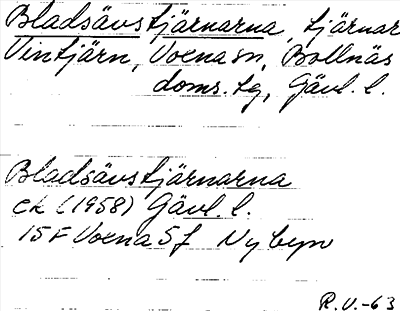 Bladsävstjärnarna, tjärnar
Vintjärn, Voxna sn, Bollnäs
doms. tg, Gävl. l.
Bladsävstjärnarna
ek (1958) Gävl. l.
15F Voxna 5f Nybyn
R.V.-63